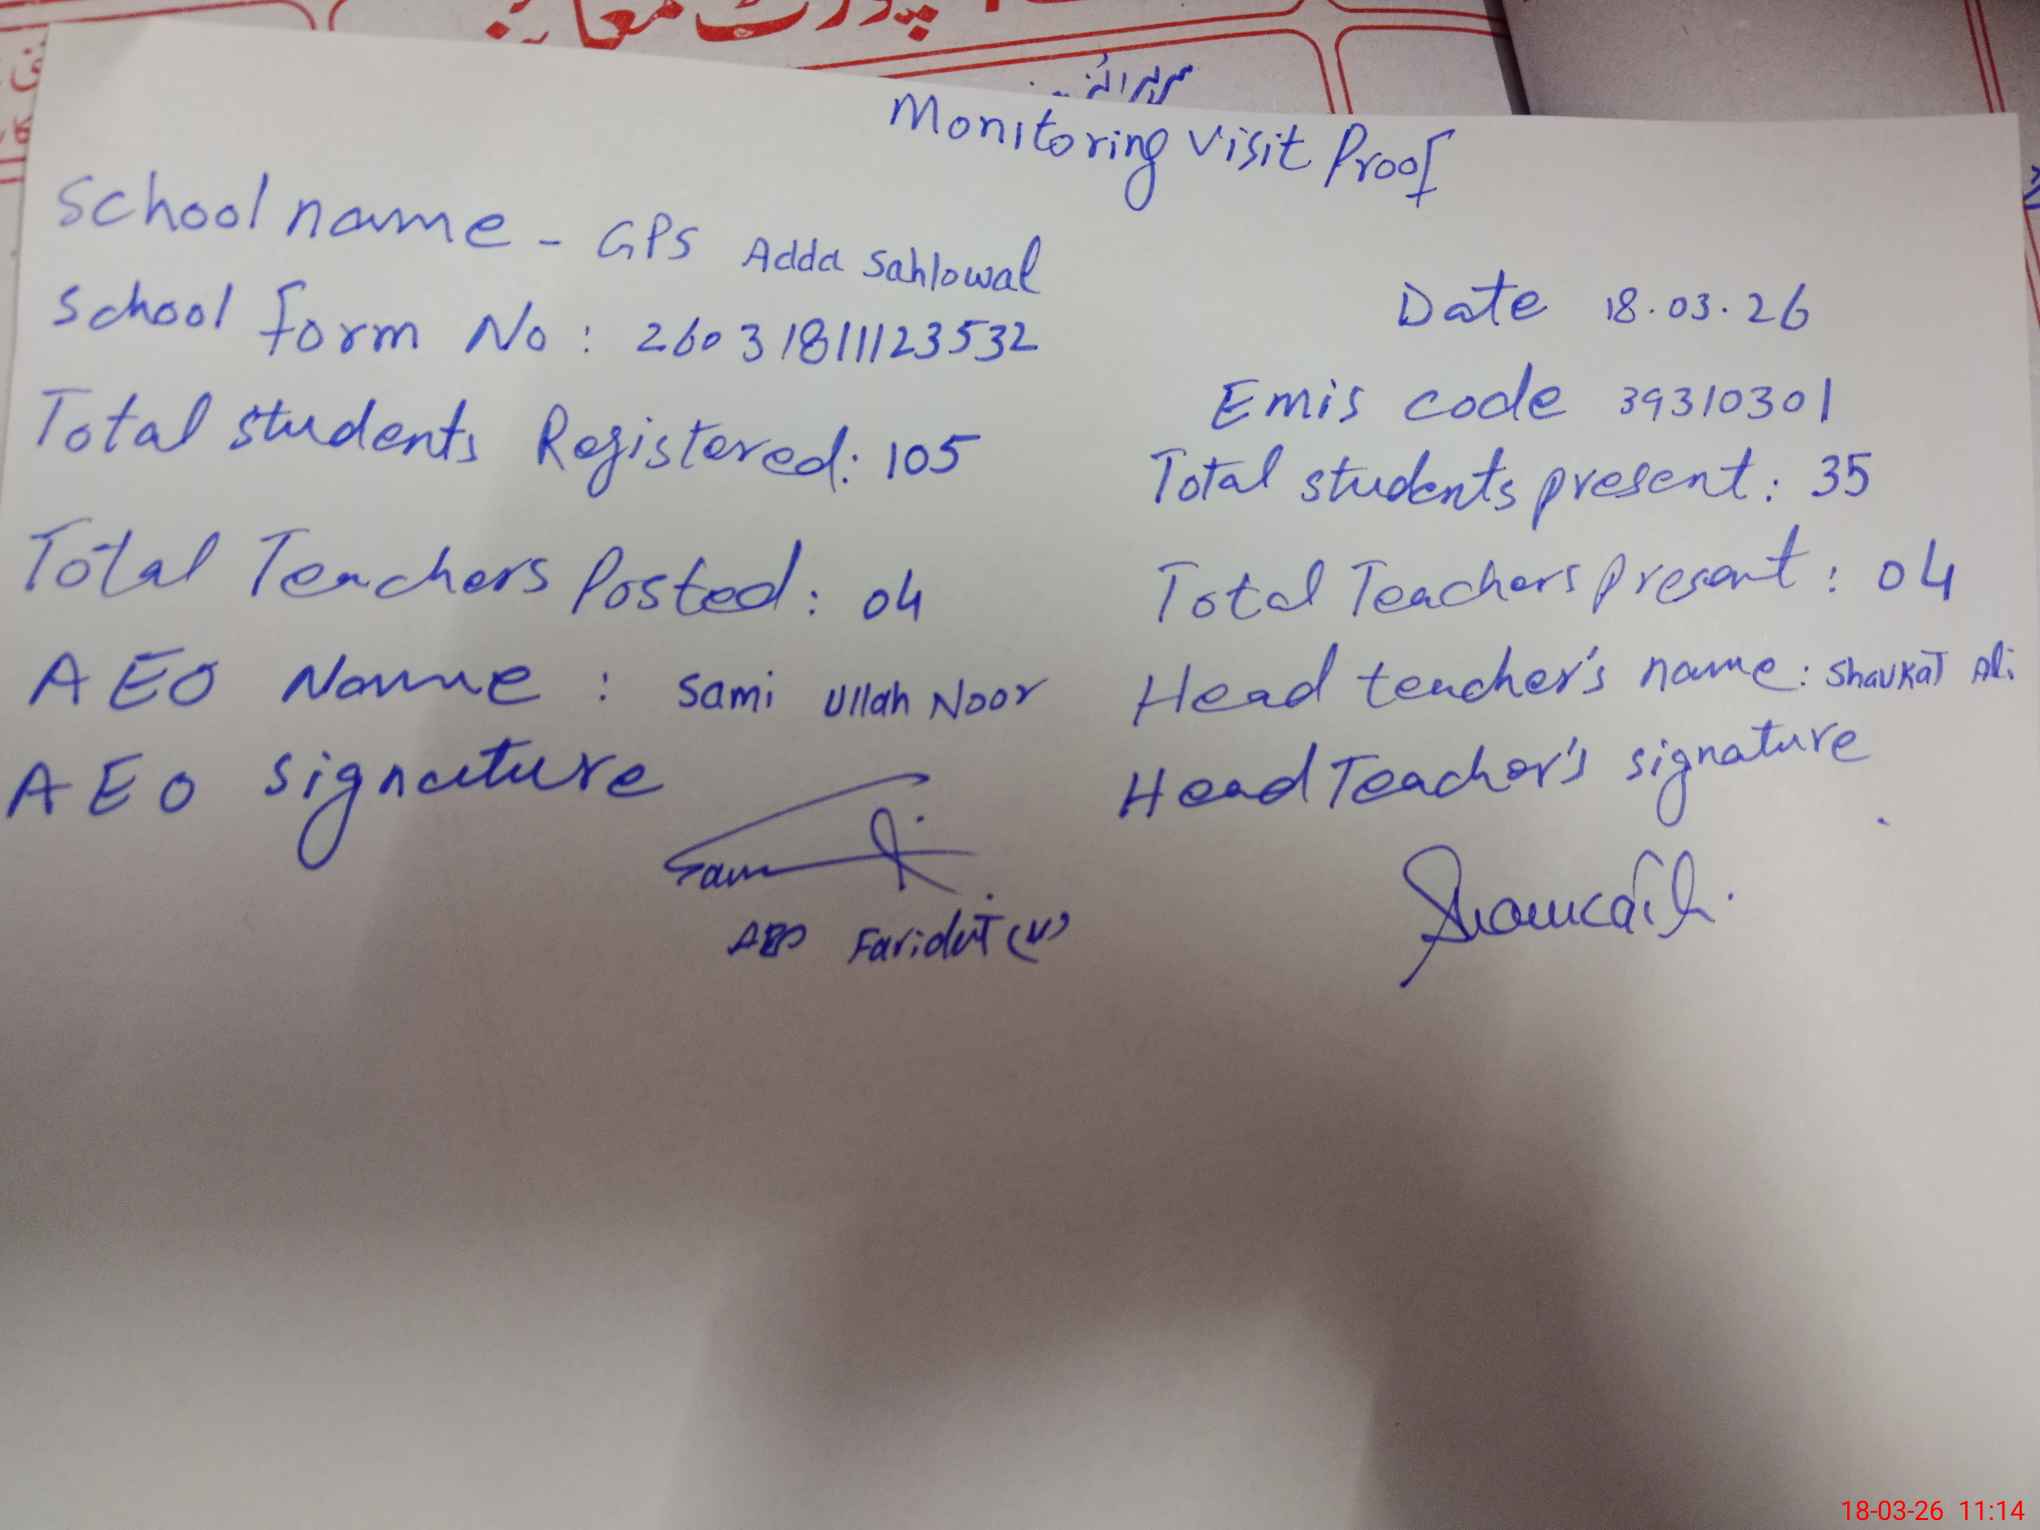 رپورٹ معائنہ
Monitoring Visit Proof
School name - GPS Adda Sahlowal
Date 18.03.26
School form No: 26031811123532
Emis code 39310301
Total students Registered: 105
Total students present: 35
Total Teachers Posted: 04
Total Teachers present: 04
AEO Name: Sami Ullah Noor
Head teacher's name: Shaukat Ali
AEO signature
Head Teacher's signature
AEO Faridut (W)
18-03-26 11:14